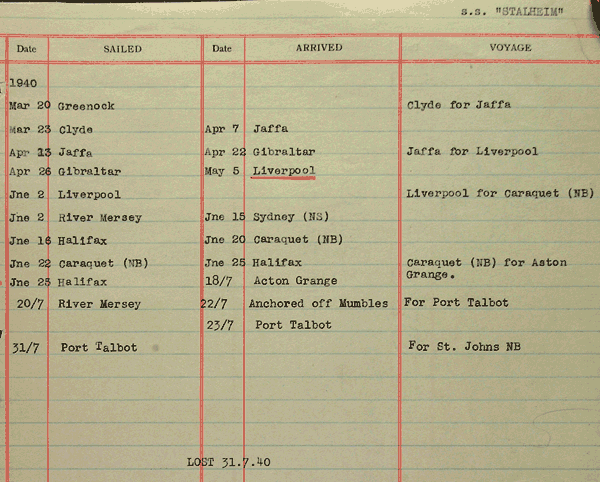 s.s. "STALHEIM"
Date SAILED Date ARRIVED VOYAGE
1940
Mar 20 Greenock Clyde for Jaffa
Mar 23 Clyde Apr 7 Jaffa
Apr 13 Jaffa Apr 22 Gibraltar Jaffa for Liverpool
Apr 26 Gibraltar May 5 Liverpool
Jne 2 Liverpool Liverpool for Caraquet (NB)
Jne 2 River Mersey Jne 15 Sydney (NS)
Jne 16 Halifax Jne 20 Caraquet (NB)
Jne 22 Caraquet (NB) Jne 25 Halifax Caraquet (NB) for Aston
Jne 25 Halifax 18/7 Acton Grange Grange.
20/7 River Mersey 22/7 Anchored off Mumbles For Port Talbot
23/7 Port Talbot
31/7 Port Talbot For St. Johns NB
LOST 31.7.40